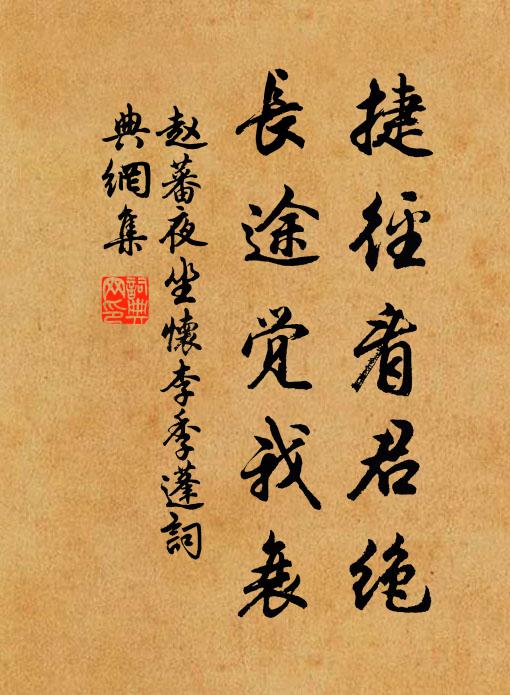 捷徑看君绝
長途覺我衰
赵蕃夜坐懷李季蓬詞
典網集
詞典网印